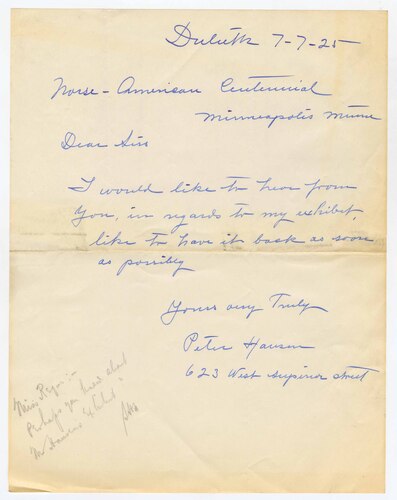 Duluth 7-7-25
Norse-American Centennial
Minneapolis Minn
Dear Sirs
I would like to hear from
you, in regards to my exhibit,
like to have it back as soon
as possibly
Yours very Truly
Peter Hansen
623 West Superior street
Perhaps you know about
Mr Hansens Exhibit